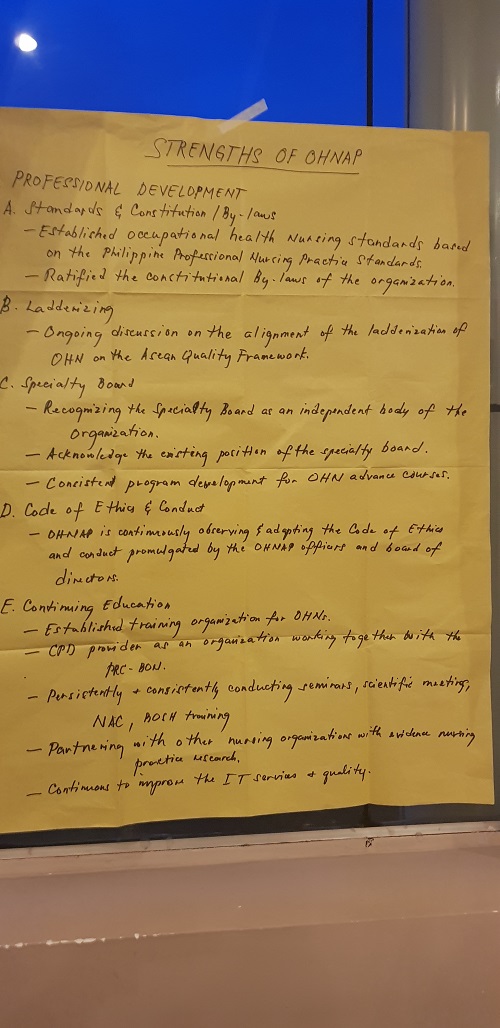 STRENGTHS OF OHNAP
PROFESSIONAL DEVELOPMENT
A. Standards & Constitution / By-laws
- Established occupational health Nursing standards based
on the Philippine Professional Nursing Practice Standards.
- Ratified the constitutional By-laws of the organization.
B. Ladderizing
- Ongoing discussion on the alignment of the ladderization of
OHN on the Asean Quality Framework.
C. Specialty Board
- Recognizing the Specialty Board as an independent body of the
Organization.
- Acknowledge the existing position of the specialty board.
- Consistent program development for OHN advance courses.
D. Code of Ethics & Conduct
- OHNAP is continuously observing & adapting the Code of Ethics
and conduct promulgated by the OHNAP officers and board of
directors.
E. Continuing Education
- Established training organization for OHNs.
- CPD provider as an organization working together with the
PRC-BON.
- Persistently & consistently conducting seminars, scientific meeting,
NAC, BOSH training
- Partnering with other nursing organizations with evidence nursing
practice research.
- Continuous to improve the IT services & quality.